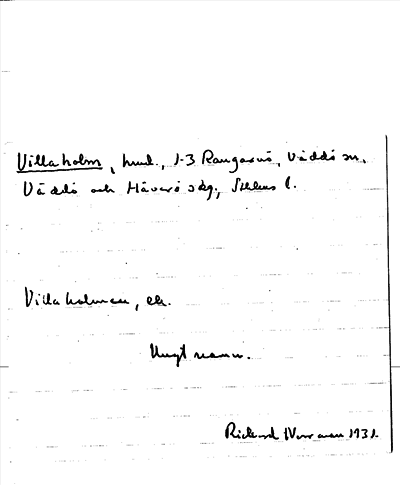 Villaholm, hmd., 1-3 Rangarnö, Väddö sn.
Väddö och Häverö skg., Sthlms l.
Villaholmen, ek.
Ungt namn.
Rickard 1931.